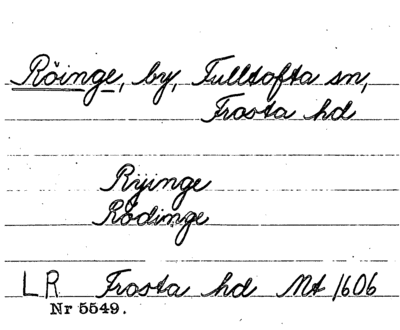 Röinge, by, Fulltofta sn,
Frosta hd
Ryinge
Rödinge
LR Frosta hd Mt 1606
Nr 5549.